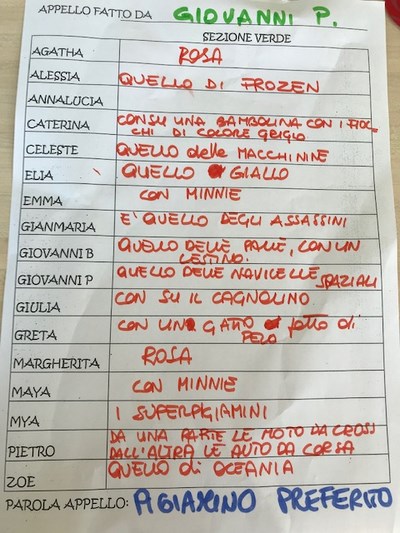 APPELLO FATTO DA GIOVANNI P.
SEZIONE VERDE
AGATHA ROSA
ALESSIA QUELLO DI FROZEN
ANNALUCIA
CATERINA CON SU UNA BAMBOLINA CON I FIOC-
CHI DI COLORE GRIGIO
CELESTE QUELLO delle MACCHININE
ELIA QUELLO GIALLO
EMMA CON MINNIE
GIANMARIA E' QUELLO DEGLI ASSASSINI
GIOVANNI B QUELLO DELLE PALLE, CON UN
CESTINO.
GIOVANNI P QUELLO DELLE NAVICELLE SPAZIALI
GIULIA CON SU IL CAGNOLINO
GRETA CON UN GATTO fatto di
PELO
MARGHERITA ROSA
MAYA CON MINNIE
MYA I SUPERPIGIAMINI
PIETRO DA UNA PARTE LE MOTO DA CROSS
DALL'ALTRA LE AUTO DA CORSA
ZOE QUELLO di OCEANIA
PAROLA APPELLO: PIGIAMINO PREFERITO